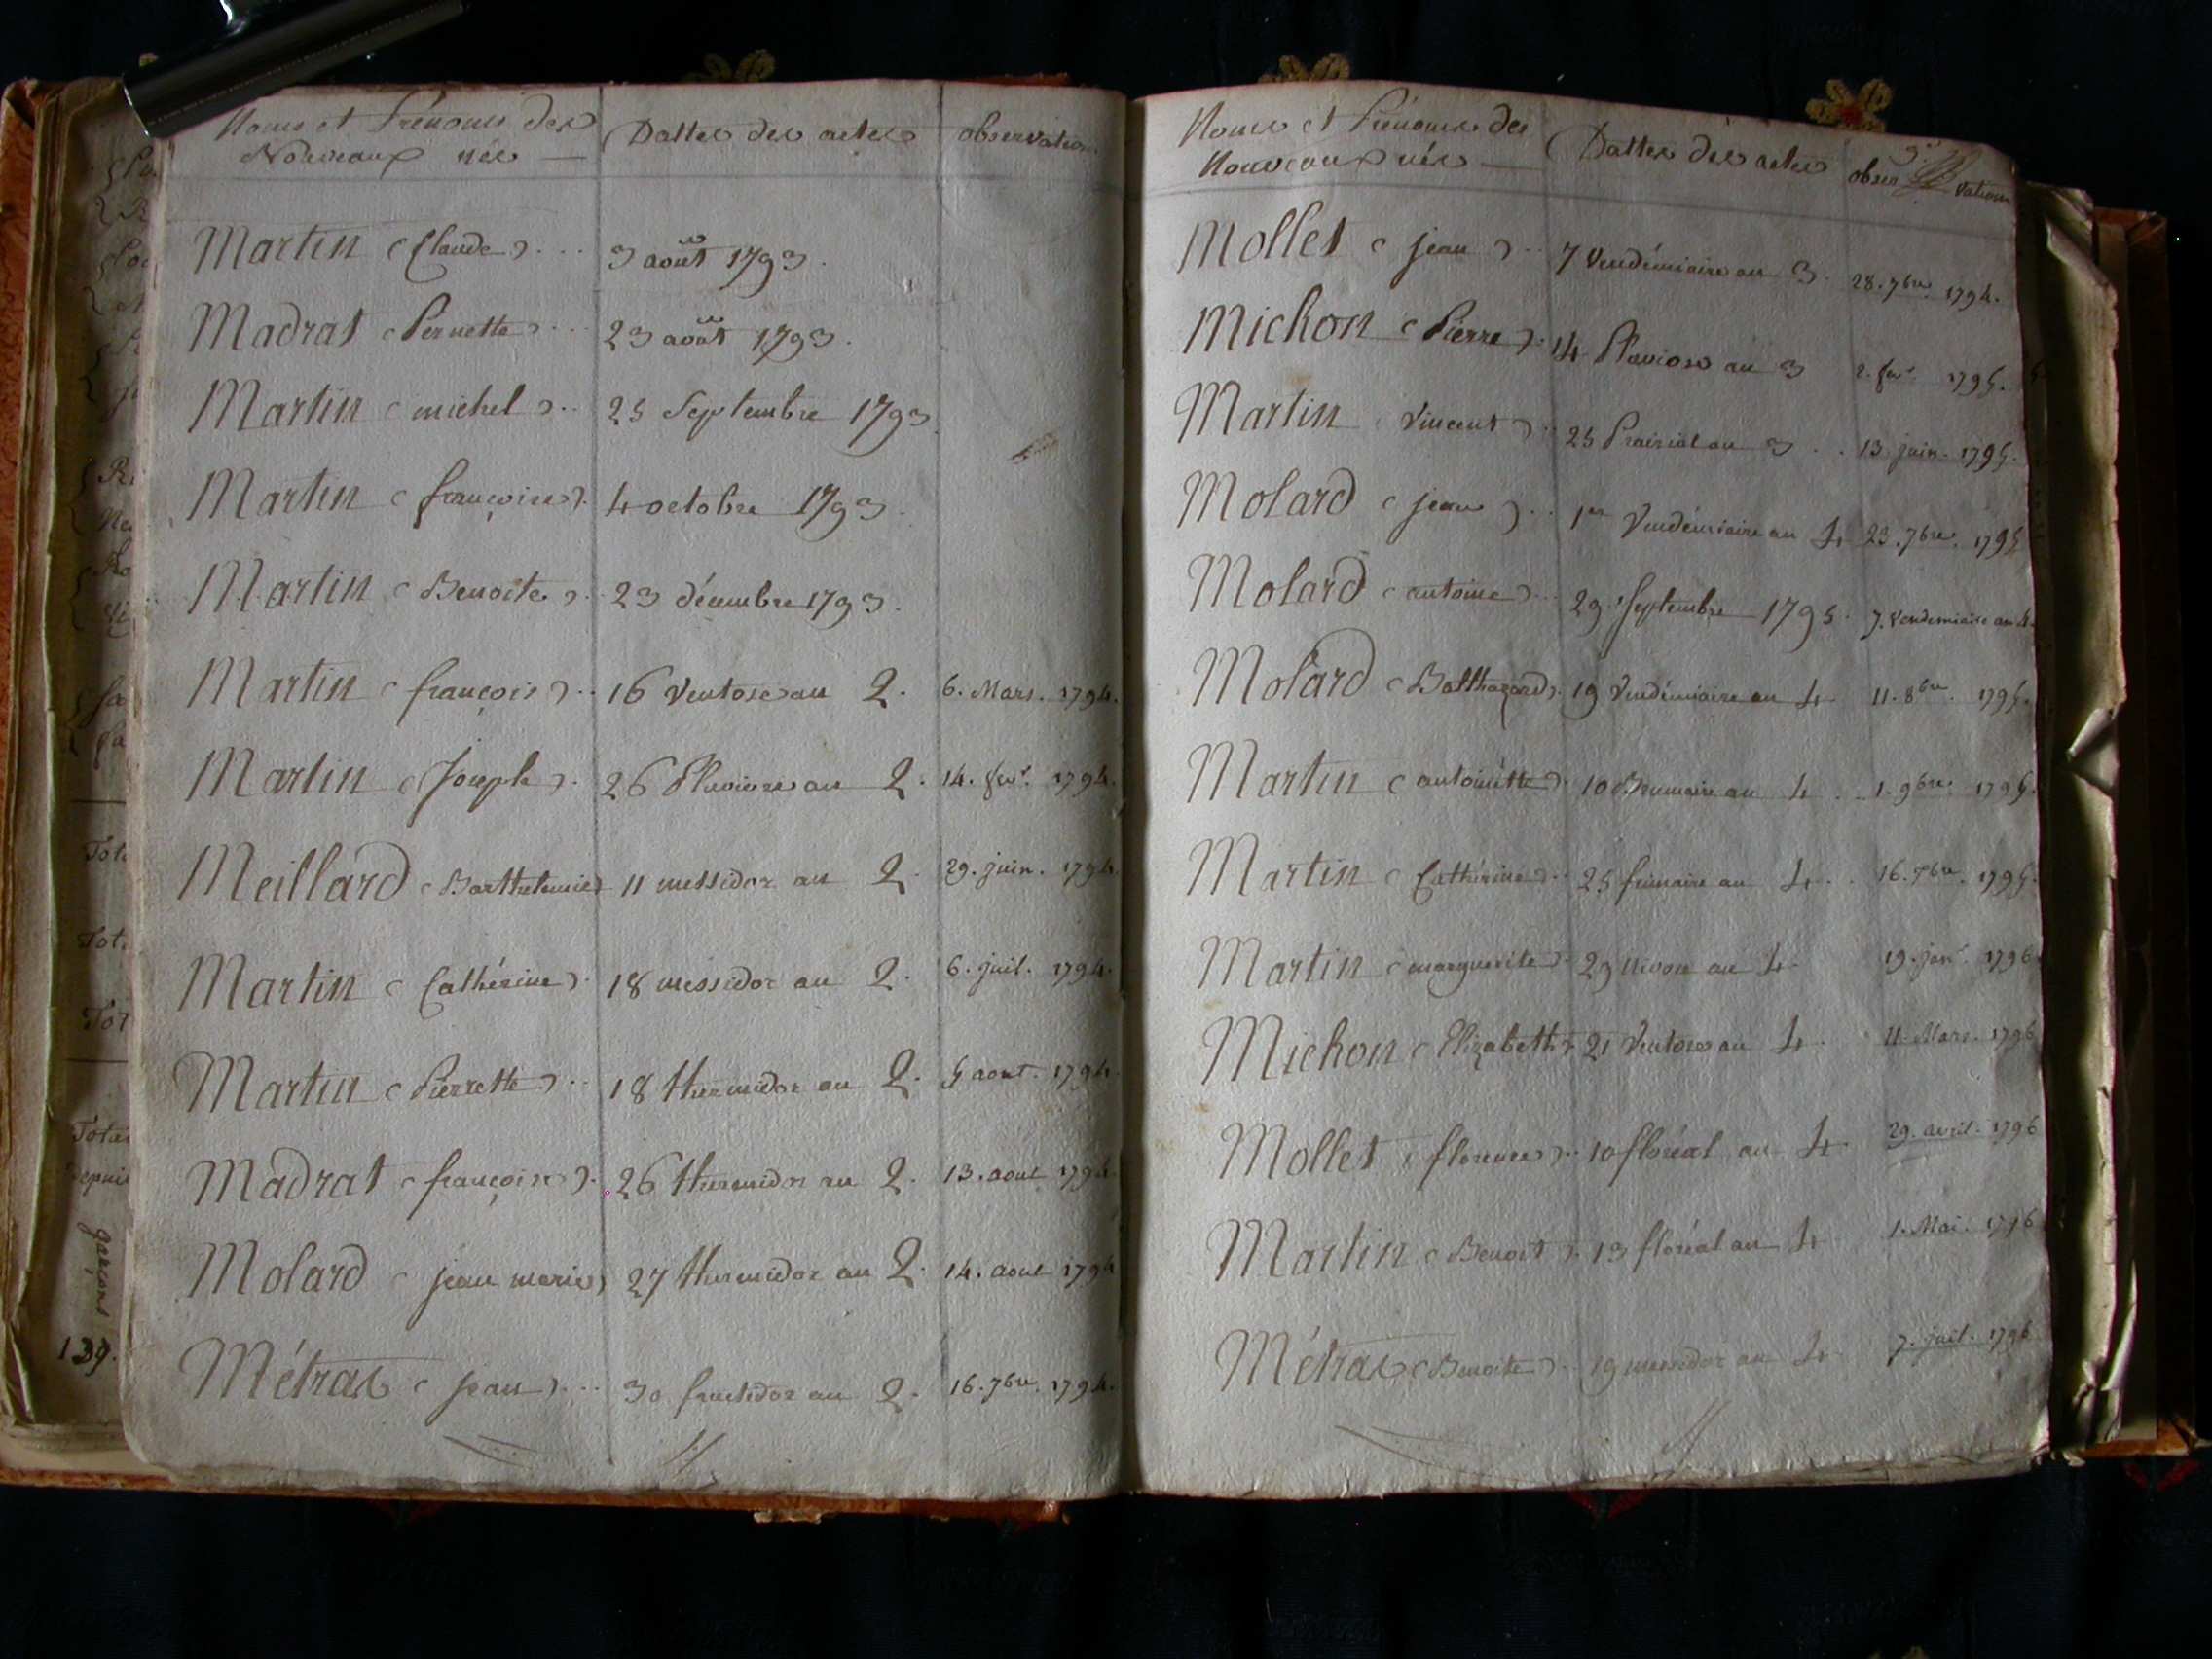 Noms et Prénoms des Dattes des actes observations
Nouveaux nés
Martin (Claude) 3 août 1793.
Madrat (Pernette) 23 août 1793.
Martin (michel) 25 Septembre 1793
Martin (françoise) 4 octobre 1793.
Martin (Benoite) 23 décembre 1793.
Martin (françois) 16 Ventose an 2. 6. Mars. 1794.
Martin (Joseph) 26 Pluviose an 2. 14. fevr. 1794.
Meillard (Barthelemie) 11 messidor an 2. 29. juin. 1794.
Martin (Cathérine) 18 messidor an 2. 6. juil. 1794.
Martin (Pierrette) 18 thermidor an 2. 5 aout. 1794.
Madrat (françoise) 26 thermidor an 2. 13. aout 1794
Molard (jean marie) 27 thermidor an 2. 14. aout 1794
Métras (jean) 30 fructidor an 2. 16. 7bre. 1794.
Noms et Prénoms des Dattes des actes observations
Nouveaux nés
Mollet (jean) 7 Vendémiaire an 3. 28. 7bre. 1794.
Michon (Pierre) 14 Pluviose an 3 2. fevr. 1795.
Martin (Vincent) 25 Prairial an 3 13 juin. 1795.
Molard (jean) 1er Vendémiaire an 4 23. 7bre. 1795
Molard (antoine) 29 Septembre 1795. 7. Vendemiaire an 4.
Molard (Balthazard) 19 Vendémiaire an 4 11. 8bre. 1795.
Martin (antoinétte) 10 Brumaire an 4 1. 9bre. 1795.
Martin (Cathérine) 25 frimaire an 4. 16. 1795.
Martin (marguerite) 29 Nivose an 4. 19. janr. 1796.
Michon (Elizabeth) 21 Ventose an 4. 11 Mars. 1796
Mollet (florence) 10 floréal an 4 29. avril. 1796
Martin (Benoit) 13 floréal an 4 1. Mai. 1796
Métras (Benoite) 19 messidor an 4. 7. juil. 1796
garçons
139.